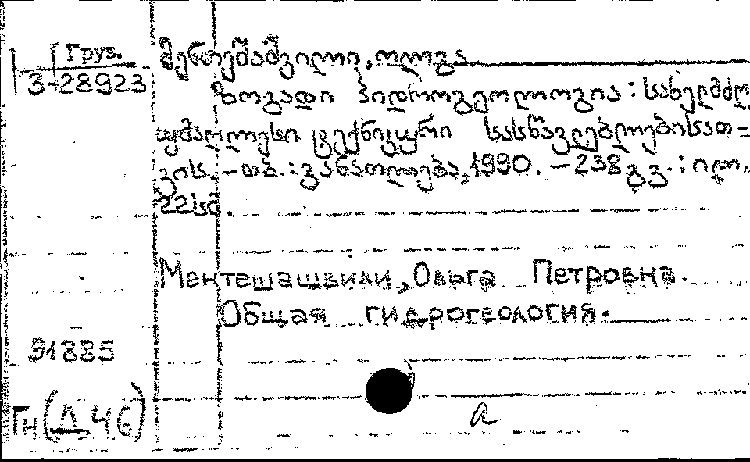 Груз.
3-28923
მენთეშაშვილი, ოლგა
ზოგადი ჰიდროგეოლოგია : სახელმძღ.
უმაღლესი ტექნიკური სასწავლებლებისათ=
ვის. – თბ. : განათლება, 1990. – 238 გვ. : ილ.
22 სმ.
Ментешашвили, Ольга Петровна.
Общая гидрогеология.
91885
Гн (Д 46)
a